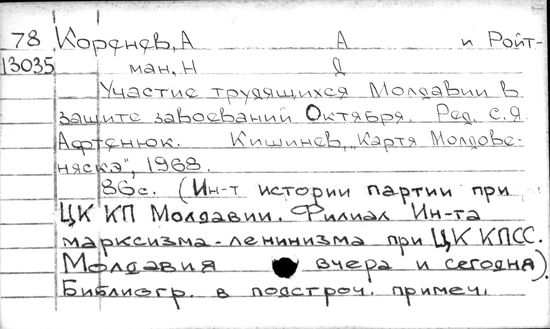 78 Коренев, А А и Ройт-
13035 ман, Н Д
Участие трудящихся Молдавии в
защите завоеваний Октября. Ред. С.Я.
Афтенюк. Кишинев, "Картя Молдове-
няскэ", 1968.
86с. (Ин-т истории партии при
ЦК КП Молдавии. Филиал Ин-та
марксизма-ленинизма при ЦК КПСС.
Молдавия вчера и сегодня).
Библиогр. в подстроч. примеч.